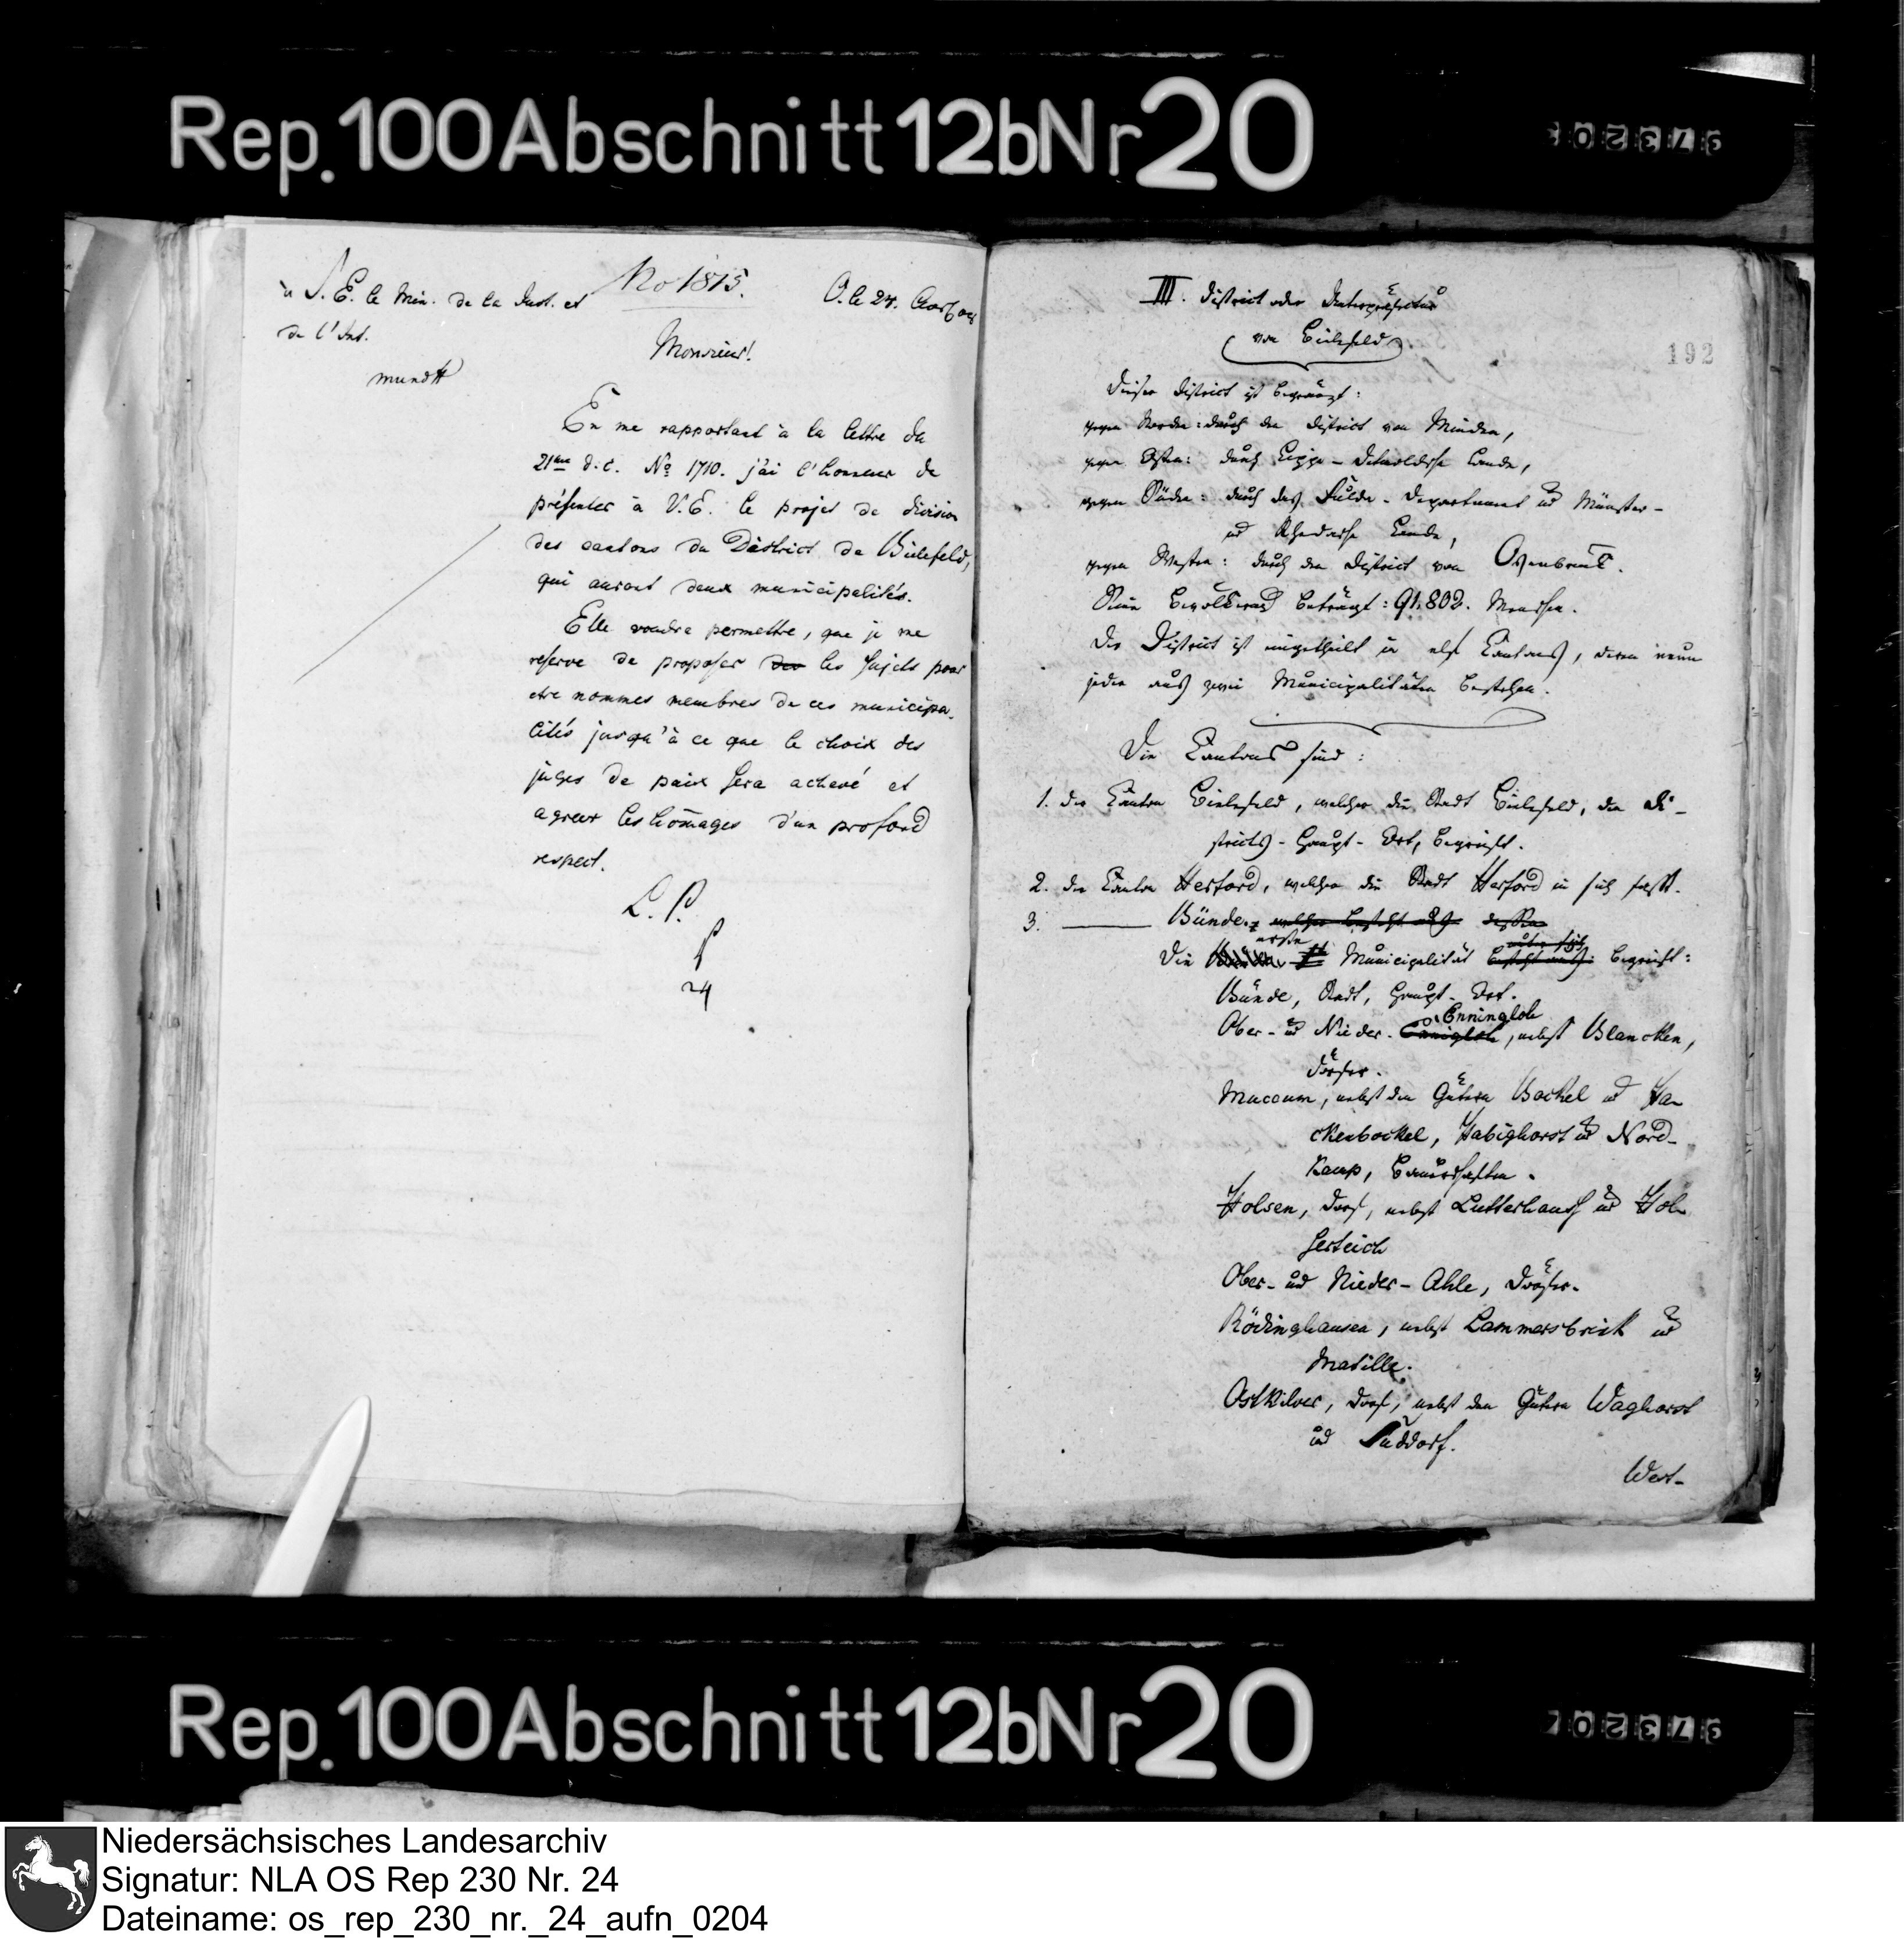 Rep. 100 Abschnitt 12b Nr 20
à S. E. le Min. de la Just. et
de l'Int.
mundtt
No 1815.
O. le 24.
Monsieur!
En me rapportant à la lettre du
21me d. c. No 1710. j'ai l'honneur de
présenter à V. E. le projet de division
des cantons du District de Bielefeld,
qui auront deux municipalités.
Elle voudra permettre, que je me
reserve de proposer des les sujets pour
etre nommes membres de ces municipa-
lités jusqu'à ce que le choix des
juges de paix sera achevé et
agreer les homages d'un profond
respect.
L. P.
24
192
III. District oder Unterpräfectur
von Bielefeld
Dieser District ist begränzt:
gegen Norden: durch den District von Minden,
gegen Osten: durch Lippe-Detmoldische Lande,
gegen Süden: durch das Fulda-Departement und Münster-
und Rhedasche Lande,
gegen Westen: durch den District von Osenbrück.
Seine Bevölkerung beträgt: 91,802. Menschen.
Der District ist eingetheilt in elf Cantons, deren neun
jeder aus zwei Municipalitäten bestehen.
Die Cantons sind:
1. der Canton Bielefeld, welcher die Stadt Bielefeld, den Di-
stricts-Haupt-Ort, begreift.
2. der Canton Herford, welcher die Stadt Herford in sich faßt.
3. ——— Bünde, welcher besteht aus dessen
Die erste Municipalität besteht aus: begreift:
Bünde, Stadt, Haupt-Ort.
Ober- und Nieder- Ennigloh Enningloh, nebst Blancken,
Dörfer.
Muccum, nebst den Gütern Bockel und Ha-
ckenbockel, Habighorst und Nord-
kamp, Bauerschaften.
Holsen, Dorf, nebst Lutterhauß und Hol-
serteich
Ober- und Nieder-Ahle, Dörfer.
Rödinghausen, nebst Lammersbrick und
Masille.
Ostkilver, Dorf, nebst den Gütern Waghorst
und Füddorf.
West-
Rep. 100 Abschnitt 12b Nr 20
Niedersächsisches Landesarchiv
Signatur: NLA OS Rep 230 Nr. 24
Dateiname: os_rep_230_nr._24_aufn_0204